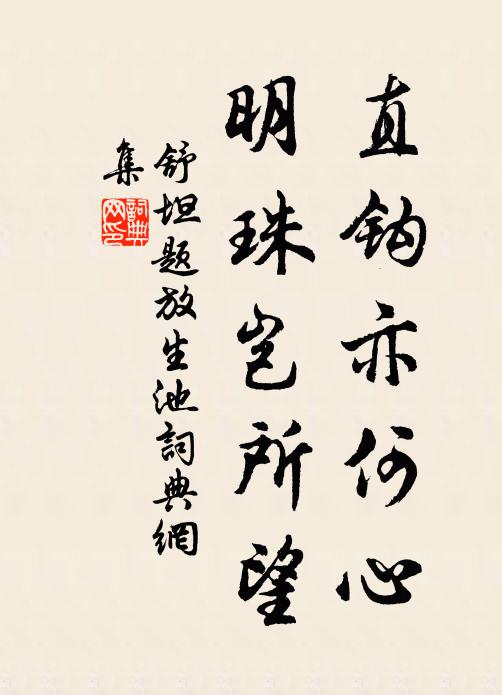 直鈎亦何心
明珠岂所望
舒坦题放生池詞典網
集
詞典網印